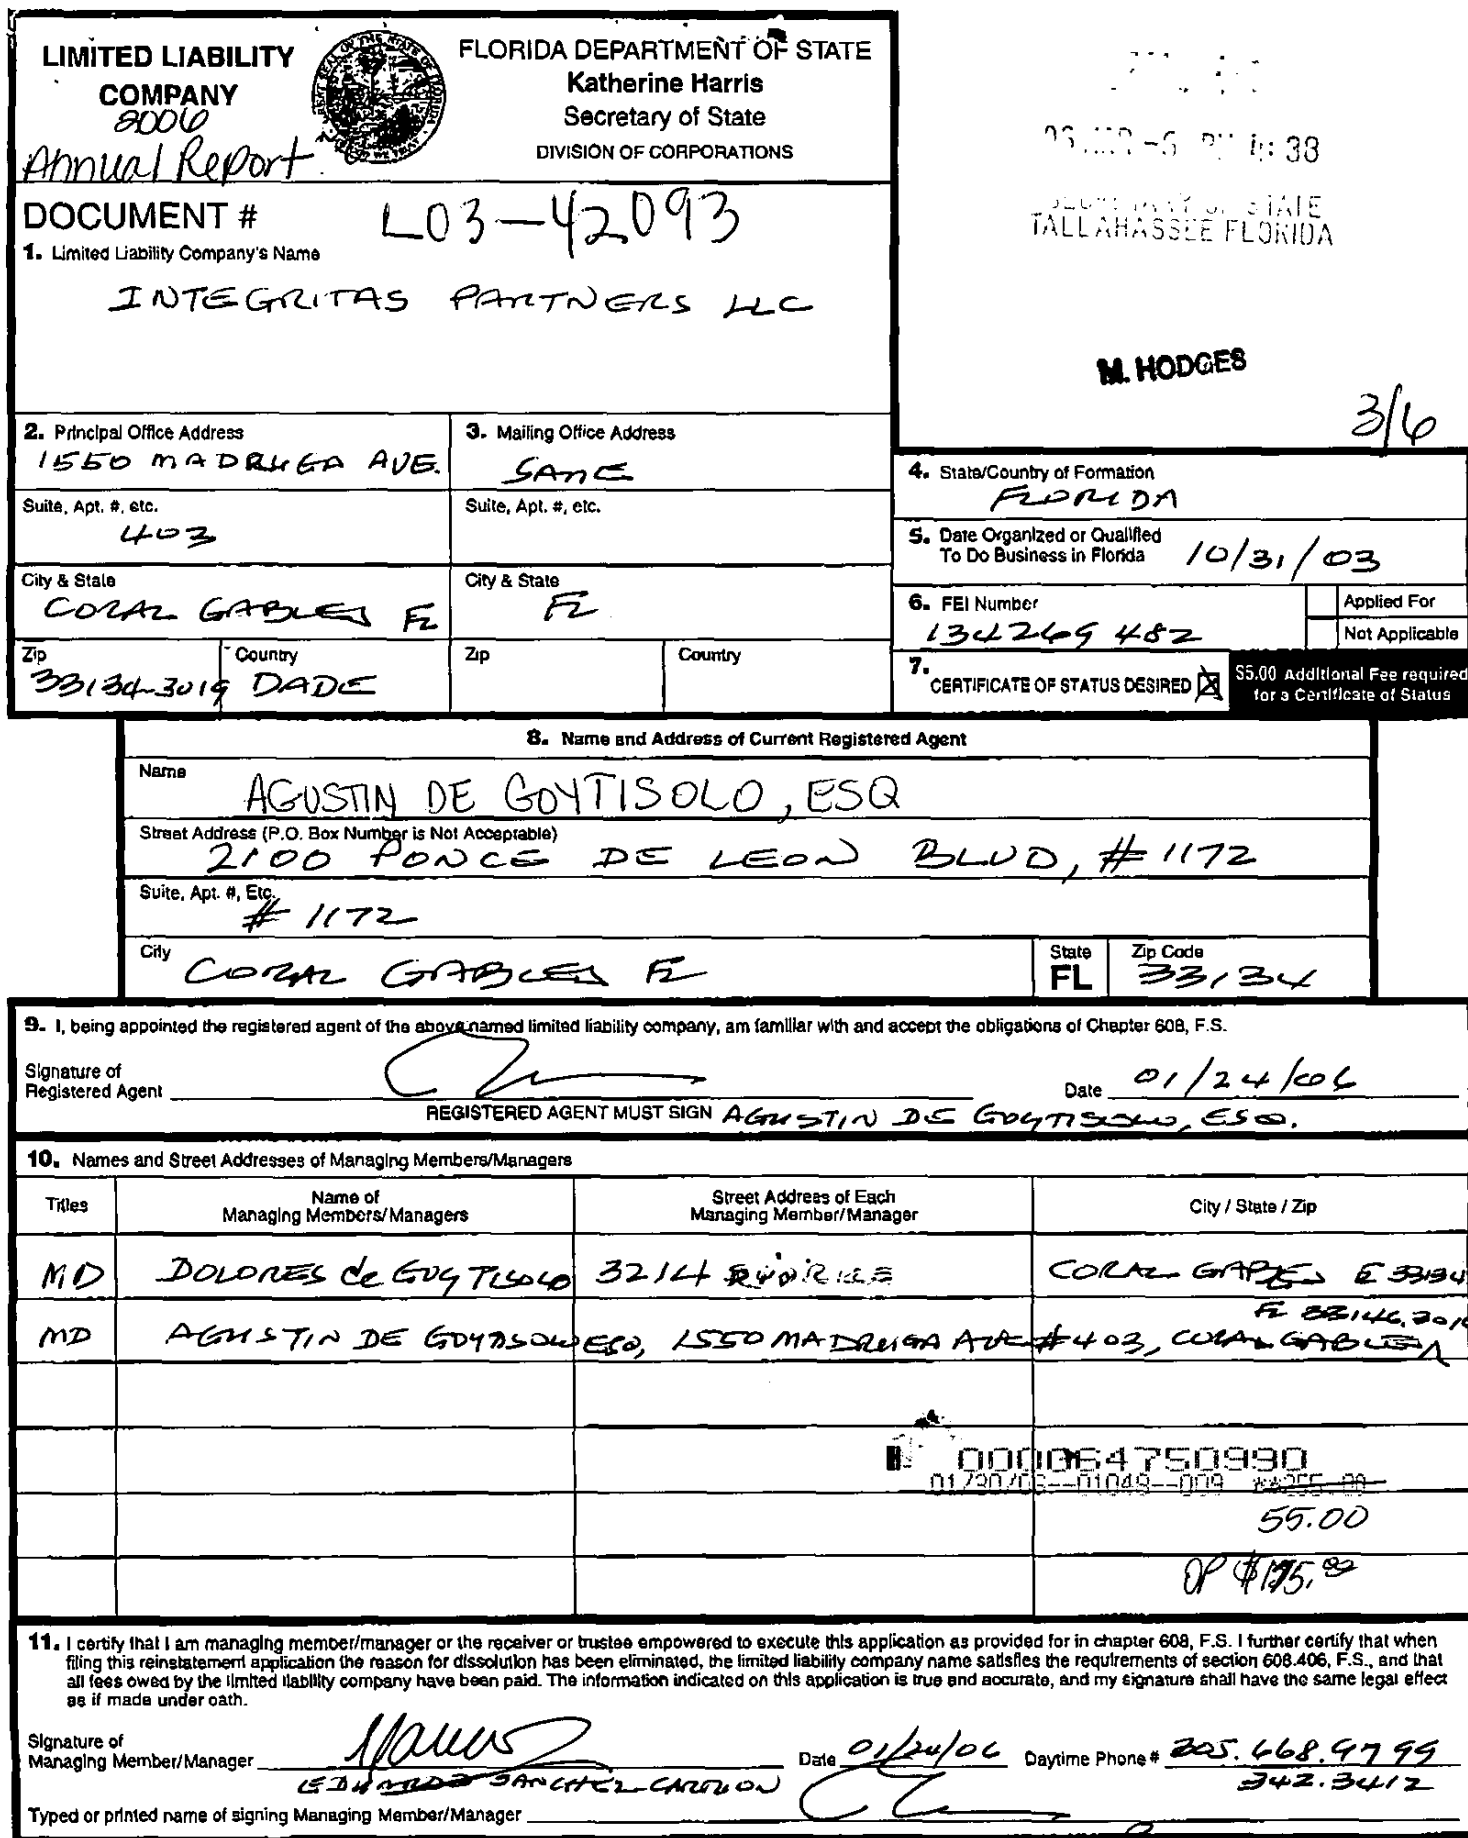 LIMITED LIABILITY
COMPANY
2006
Annual Report
FLORIDA DEPARTMENT OF STATE
Katherine Harris
Secretary of State
DIVISION OF CORPORATIONS
4:38
SECRETARY OF STATE
TALLAHASSEE FLORIDA
M. HODGES
3/6
DOCUMENT # L03-42093
1. Limited Liability Company's Name
INTEGRITAS PARTNERS LLC
2. Principal Office Address
1550 MADRUGA AVE.
3. Mailing Office Address
SAME
Suite, Apt. #, etc.
403
Suite, Apt. #, etc.
City & State
CORAL GABLES FL
City & State
FL
Zip
33134-3019
Country
DADE
Zip
Country
4. State/Country of Formation
FLORIDA
5. Date Organized or Qualified
To Do Business in Florida 10/31/03
6. FEI Number
134269482
Applied For
Not Applicable
7. CERTIFICATE OF STATUS DESIRED
$5.00 Additional Fee required
for a Certificate of Status
8. Name and Address of Current Registered Agent
Name
AGUSTIN DE GOYTISOLO, ESQ
Street Address (P.O. Box Number is Not Acceptable)
2100 PONCE DE LEON BLVD, #1172
Suite, Apt. #, Etc.
# 1172
City
CORAL GABLES FL
State
FL
Zip Code
33134
9. I, being appointed the registered agent of the above named limited liability company, am familiar with and accept the obligations of Chapter 608, F.S.
Signature of
Registered Agent
Date 01/24/06
REGISTERED AGENT MUST SIGN AGUSTIN DE GOYTISOLO, ESQ.
10. Names and Street Addresses of Managing Members/Managers
Titles
Name of
Managing Members/Managers
Street Address of Each
Managing Member/Manager
City / State / Zip
MD DOLORES de GOYTISOLO 3214 CORAL GABLES 33134
FL 33146.3019
MD AGUSTIN DE GOYTISOLO ESQ, 1550 MADRUGA AVE #403, CORAL GABLES
000064750990
01/30/06--01048--009 **255.00
55.00
OP
11. I certify that I am managing member/manager or the receiver or trustee empowered to execute this application as provided for in chapter 608, F.S. I further certify that when
filing this reinstatement application the reason for dissolution has been eliminated, the limited liability company name satisfies the requirements of section 608.406, F.S., and that
all fees owed by the limited liability company have been paid. The information indicated on this application is true and accurate, and my signature shall have the same legal effect
as if made under oath.
Signature of
Managing Member/Manager
Date 01/24/06
Daytime Phone # 305.668.9799
342.3412
SANCHEZ
Typed or printed name of signing Managing Member/Manager